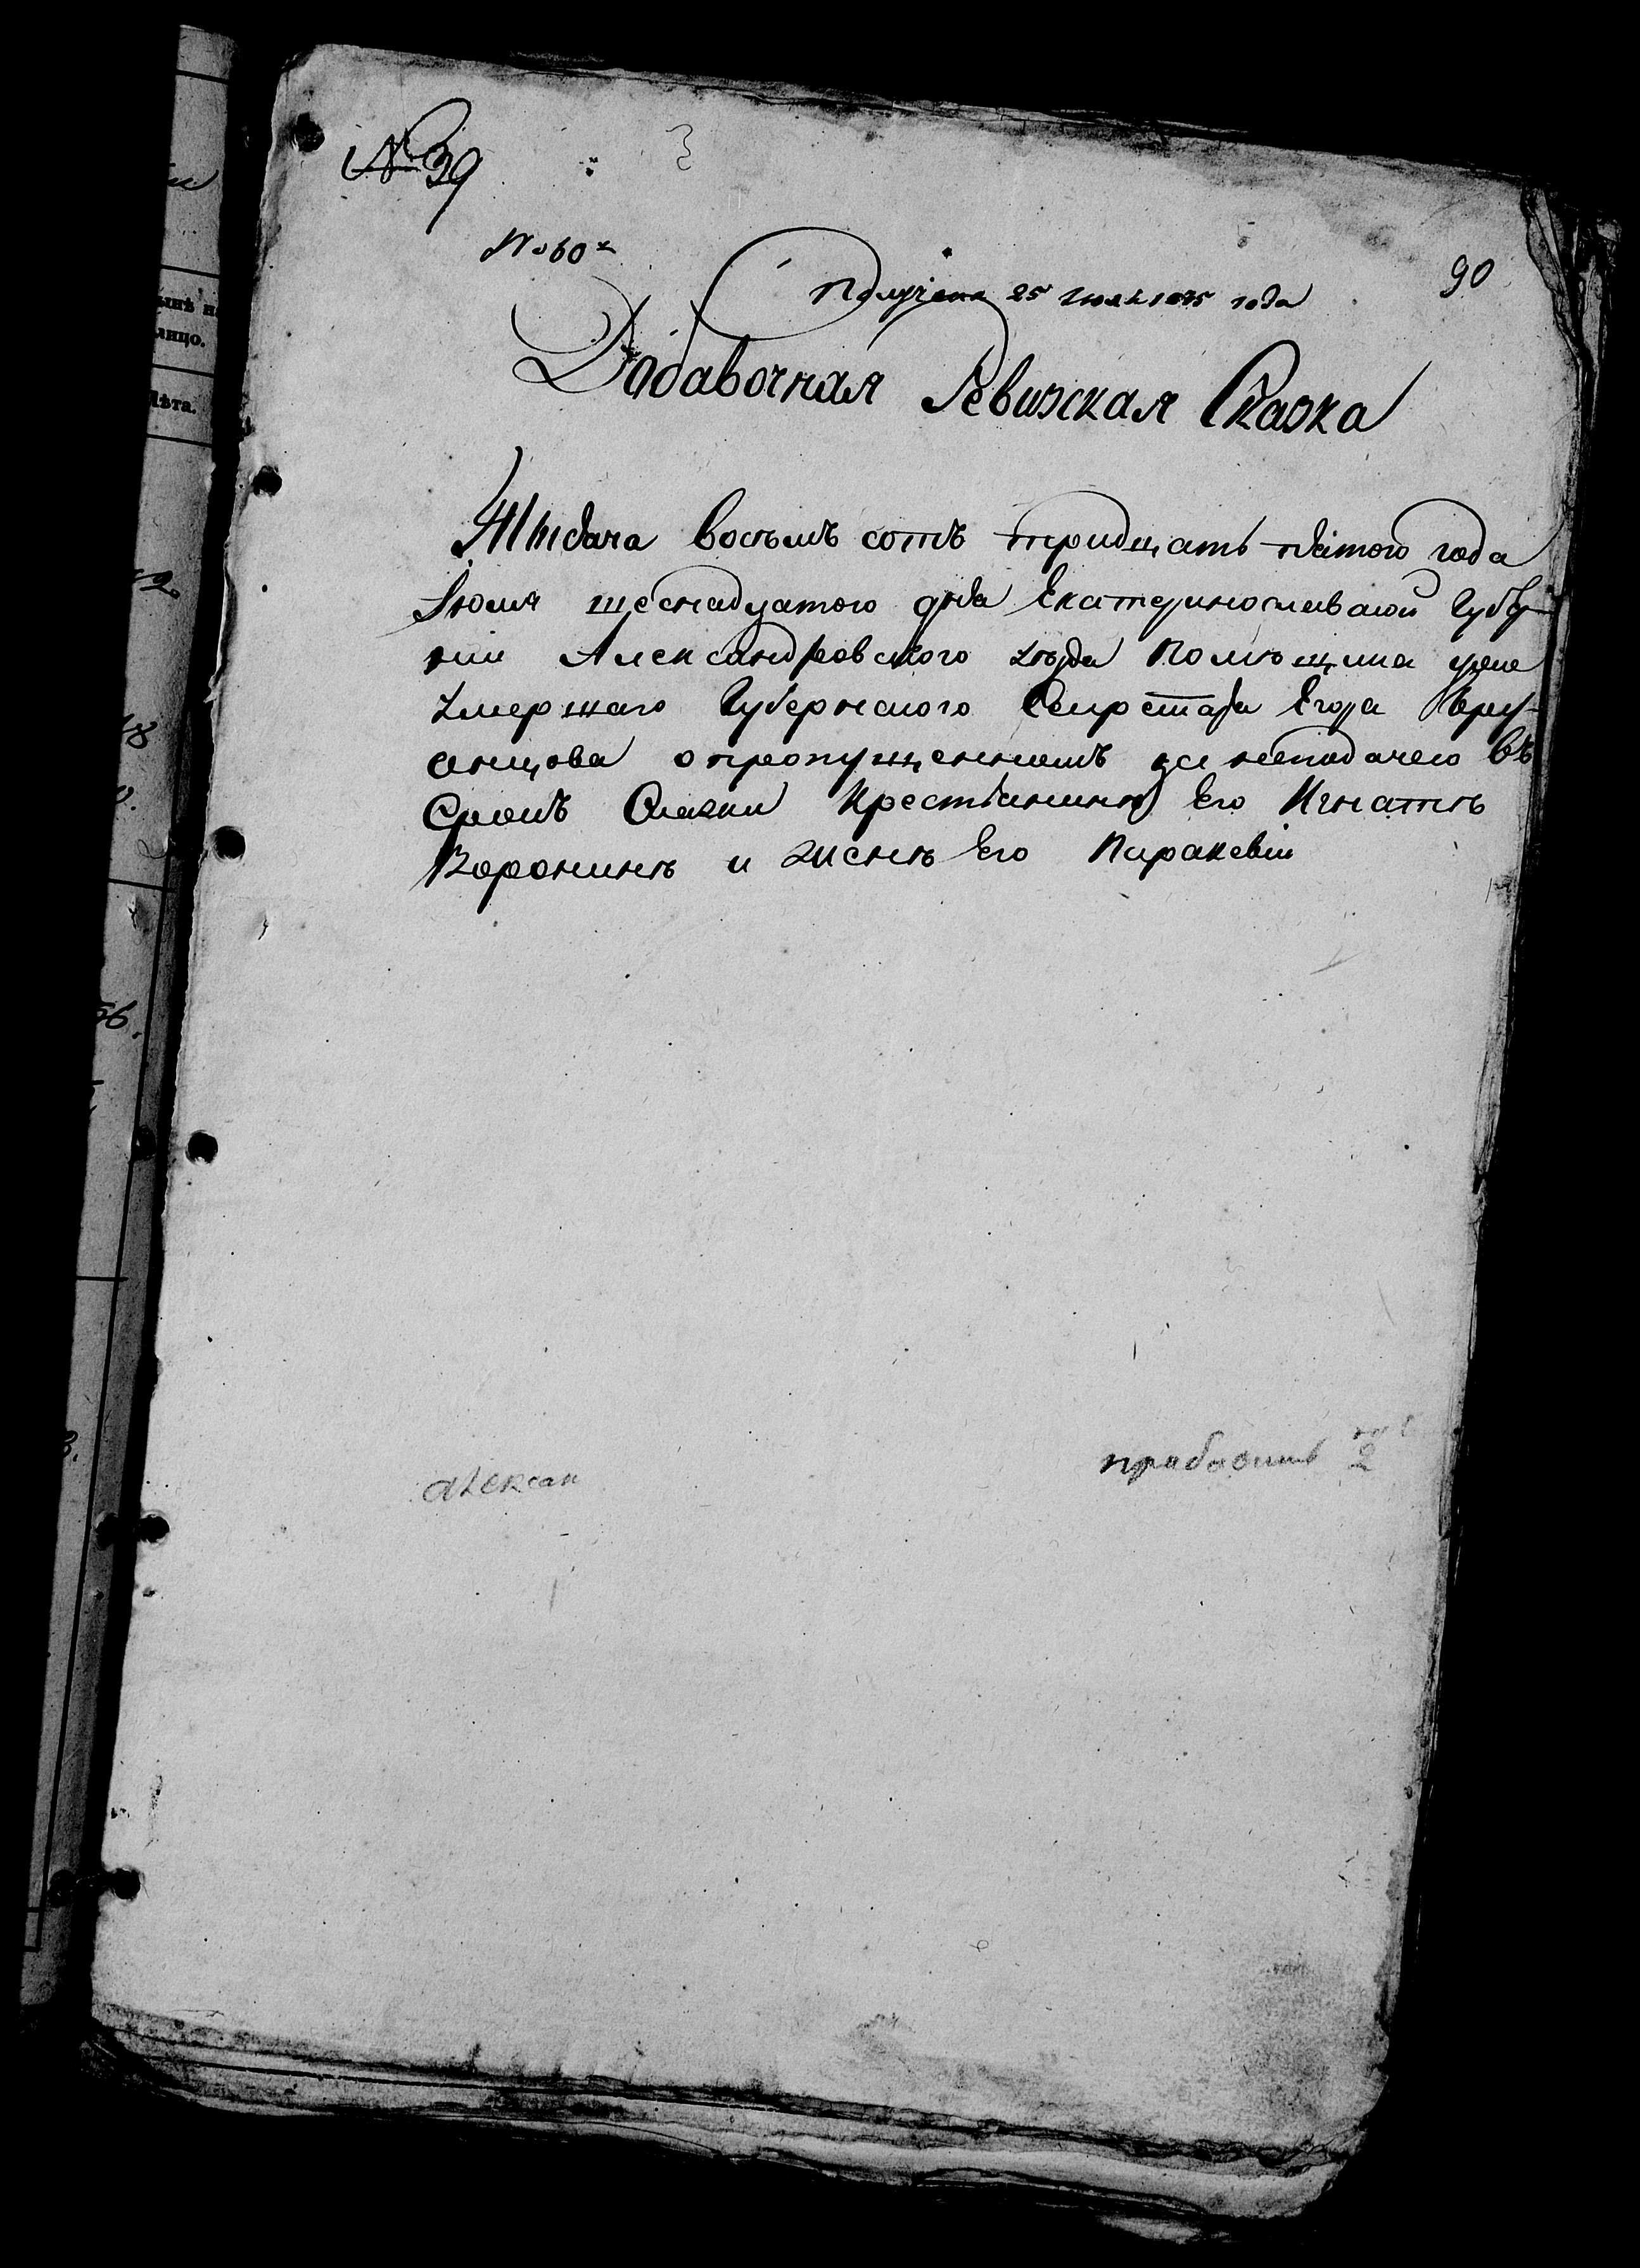 № 39
№ 60
90
Получена 25 Июля 1835 года
Добавочная Ревизская Сказка
Тысяча восемь сотъ тридцать пятого года
Июля шеснадцатого дня Екатеринославской Губер-
нии Александровского уѣзда помѣщика уже
умершаго Губернского Секретаря Егора
о пропущенномъ за неподачею въ
Срокъ Сказки Крестьянинѣ Его Игнатѣ
Воронинѣ и женѣ Его Параскевіи
алексан
прибавить 2
ынѣ н
лицо.
Лѣта.